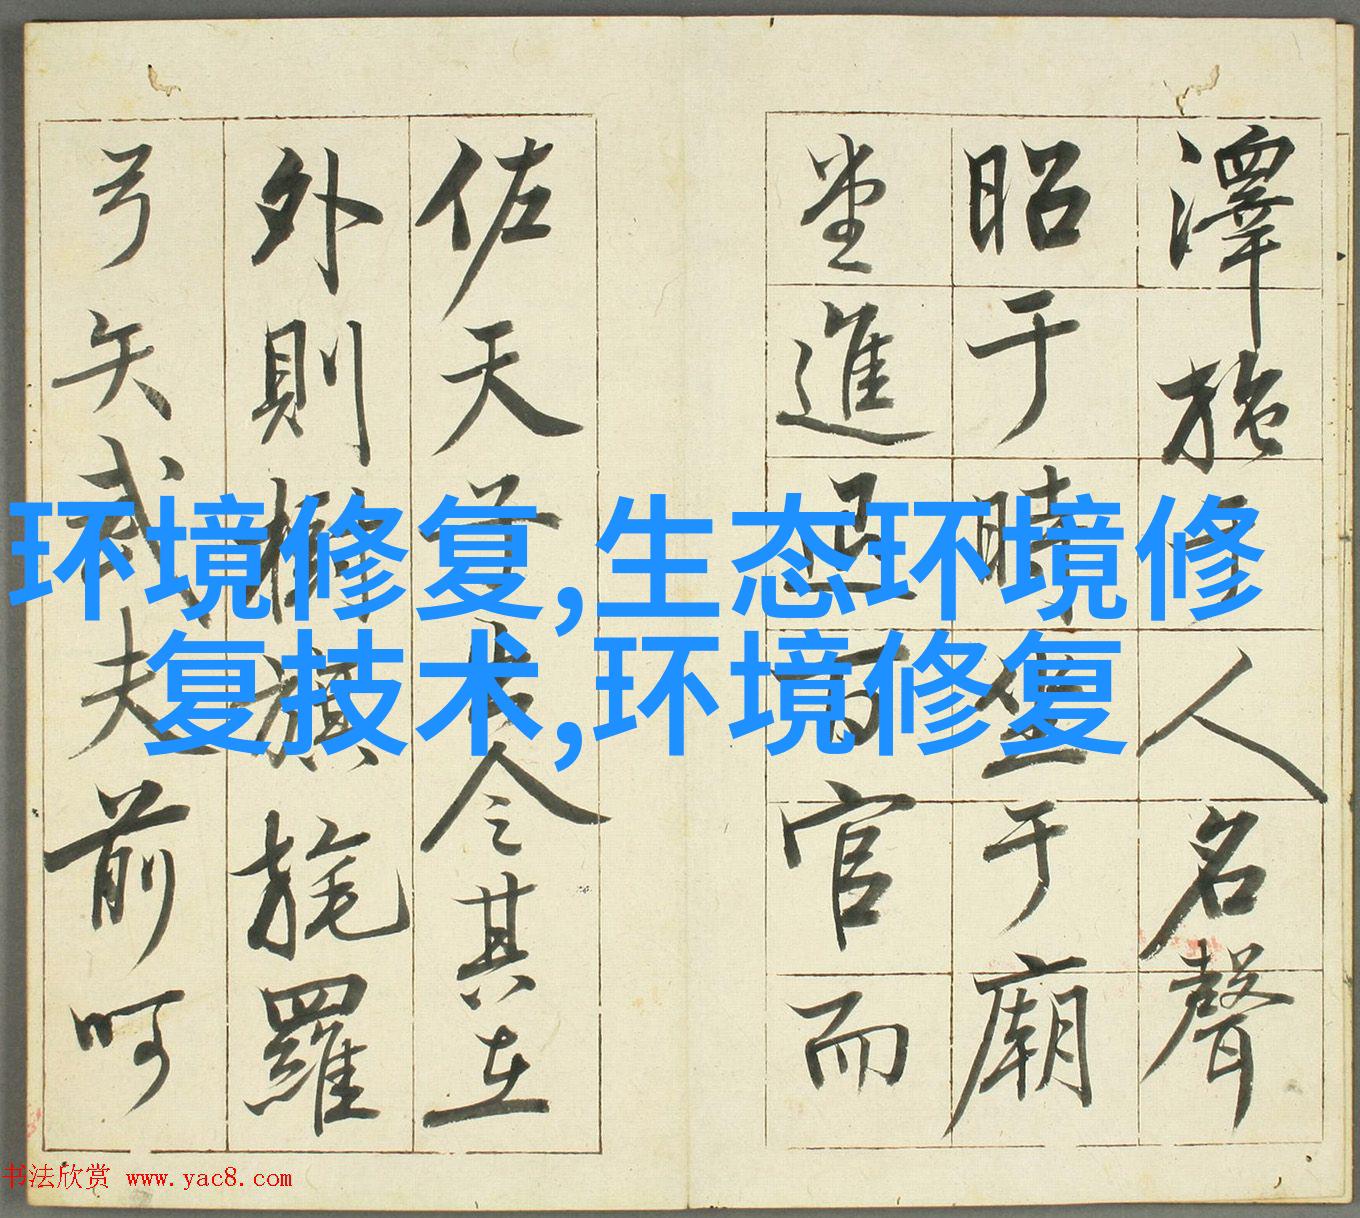 澤施于人名聲
昭于時坐于廟
堂進退百官而
佐天子出令其在
外則樹旗旄羅
弓矢武夫前呵
环境修复,生态环境修
复技术,环境修复
书法欣赏 www.yac8.com